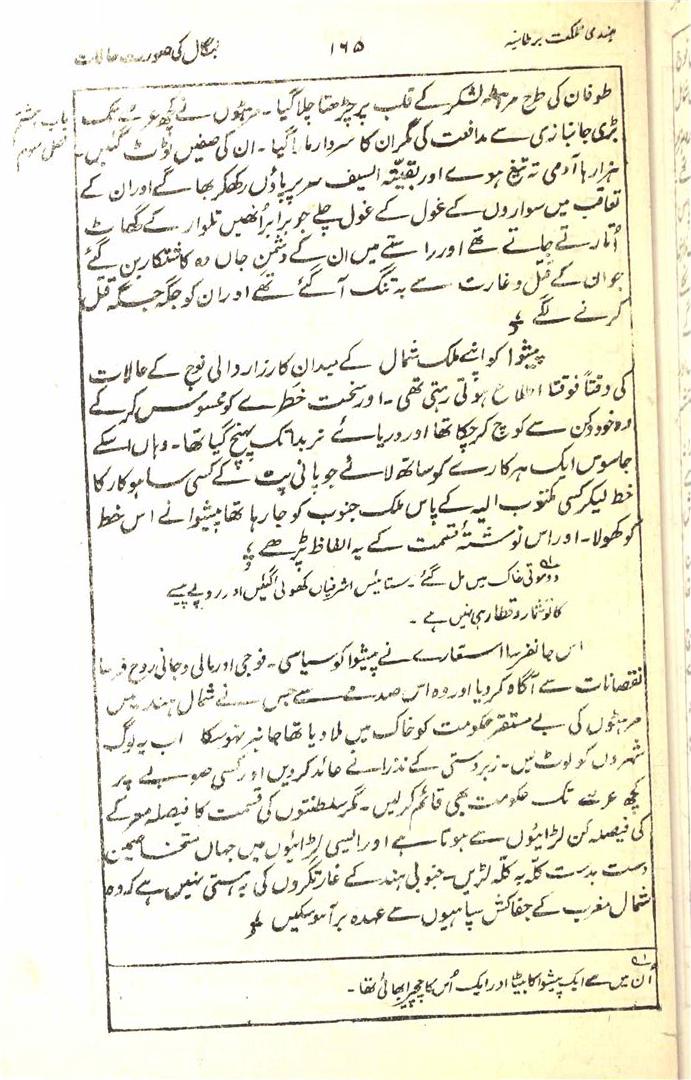 ہندی مملکت برطانیہ
۱۶۵
بنگال کی صورت حالات
باب ہشتم
فصل سوم
طوفان کی طرح مرہٹہ لشکر کے قلب پر چڑھتا چلا گیا۔ مرہٹوں نے کچھ عرصے تک
بڑی جانبازی سے مدافعت کی مگر ان کا سردار مارا گیا۔ ان کی صفیں ٹوٹ گئیں۔
ہزارہا آدمی تہ تیغ ہوے اور بقیتہ السیف سر پر پاؤں رکھ کر بھاگے اور ان کے
تعاقب میں سواروں کے غول کے غول چلے جو برابر اُنھیں تلوار کے گھاٹ
اُتارتے جاتے تھے اور راستے میں ان کے دشمن جاں وہ کاشتکار بن گئے
جو ان کے قتل و غارت سے بہ تنگ آگئے تھے اور ان کو جگہ جگہ قتل
کرنے لگے
پیشوا کو اپنے ملک شمال کے میدان کارزار والی فوج کے حالات
کی وقتاً فوقتاً اطلاع ہوتی رہتی تھی۔ اور سخت خطرے کو محسوس کر کے
وہ خود دکن سے کوچ کر چکا تھا اور دریائے نربدا تک پہنچ گیا تھا۔ وہاں اسکے
جاسوس ایک ہرکارے کو ساتھ لائے جو پانی پت کے کسی ساہوکار کا
خط لیکر کسی مکتوب الیہ کے پاس ملک جنوب کو جا رہا تھا پیشوا نے اس خط
کو کھولا۔ اور اس نوشتۂ قسمت کے یہ الفاظ پڑھے
دو موتی خاک میں مل گئے۔ ستائیس اشرفیاں کھوئی گئیں اور روپے پیسے
کا تو شمار و قطار ہی نہیں ہے۔
اس جانفرسا استعارے نے پیشوا کو سیاسی۔ فوجی اور مالی و جانی روح فرسا
نقصانات سے آگاہ کر دیا اور وہ اس صدمے سے جس نے شمال ہند میں
مرہٹوں کی بے مستقر حکومت کو خاک میں ملا دیا تھا جانبر نہو سکا اب یہ لوگ
شہروں کو لوٹ لیں۔ زبردستی کے نذرانے عائد کر دیں اور کسی صوبے پر
کچھ عرصے تک حکومت بھی قائم کر لیں۔ مگر سلطنتوں کی قسمت کا فیصلہ معرکے
کی فیصلہ کن لڑائیوں سے ہوتا ہے اور ایسی لڑائیوں میں جہاں متخاصمین
دست بدست کلّہ بہ کلّہ لڑیں۔ جنوبی ہند کے غارتگروں کی یہ ہستی نہیں ہے کہ وہ
شمال مغرب کے جفاکش سپاہیوں سے عہدہ برآ ہو سکیں
اُن میں سے ایک پیشوا کا بیٹا اور ایک اُس کا چچیرا بھائی تھا۔